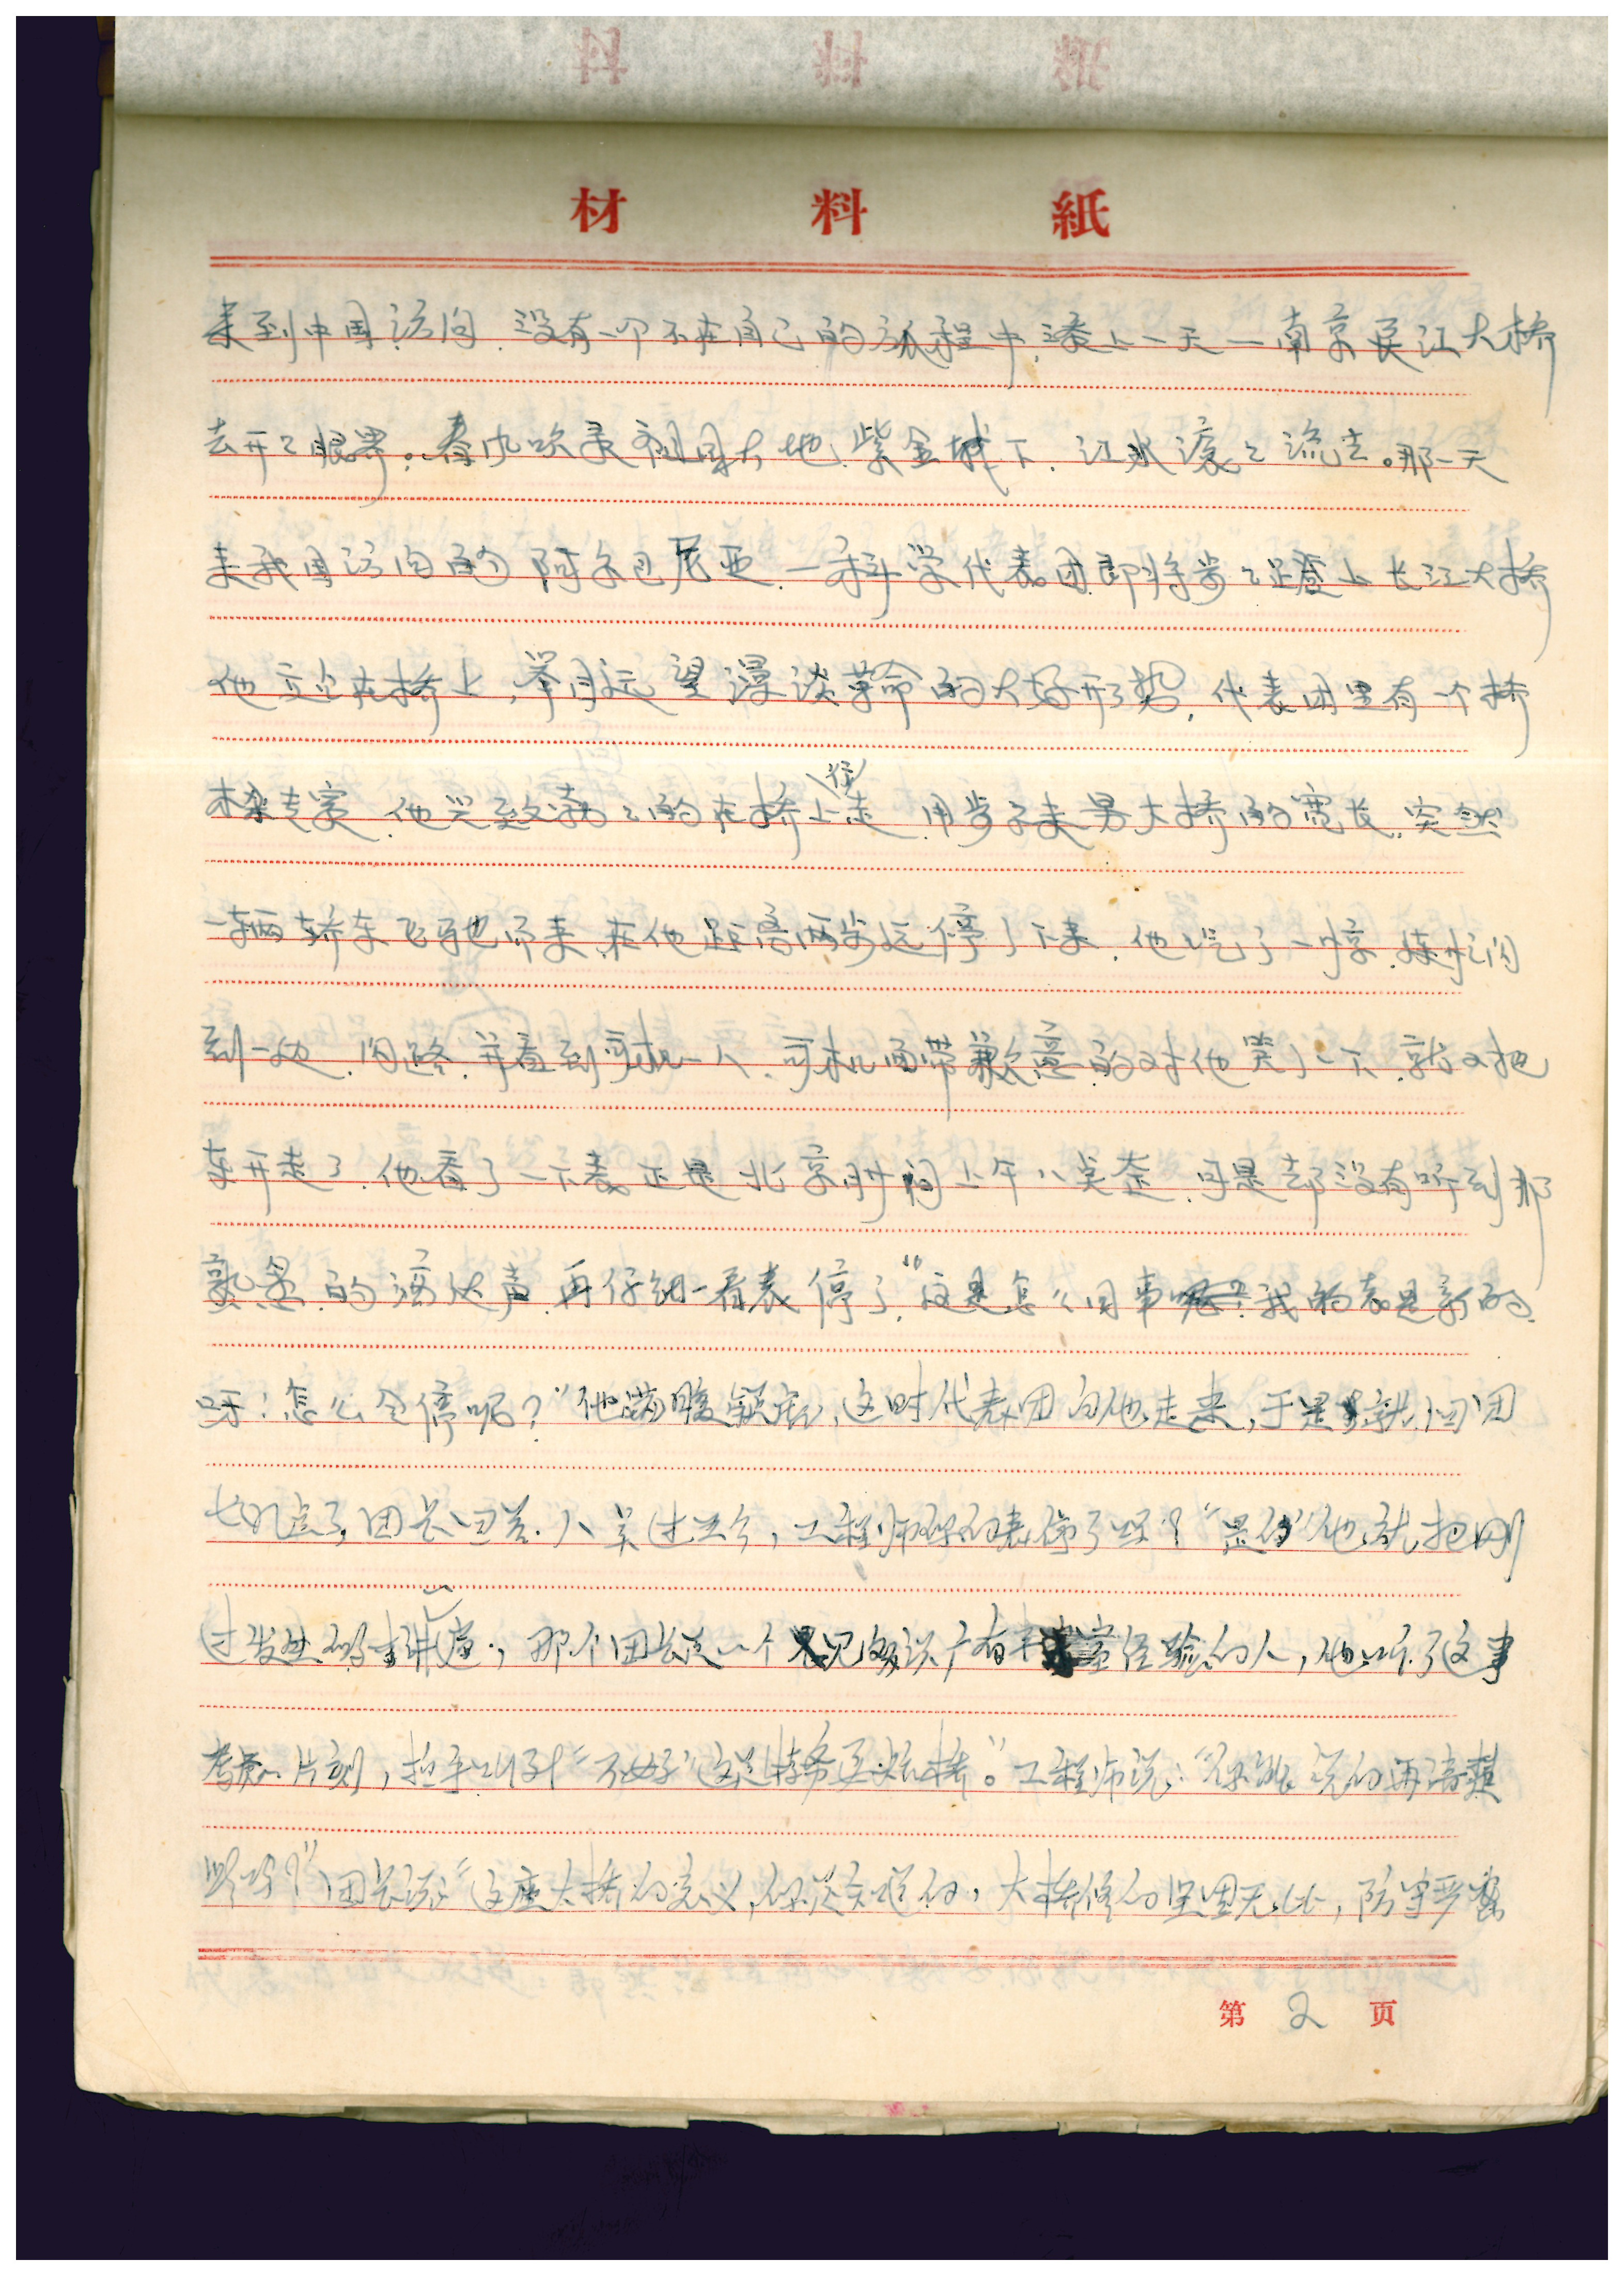 材料紙
来到中国访问.没有一个不在自己的旅程中,添上一天一南京长江大桥
去开々眼界。春风吹录祖国大地.紫金城下.江水滚々流去。那一天
来我国访问的阿尔巴尼亚.一科学代表团.即将步々登上长江大桥
他立在桥上,举目远望漫谈革命的大好形势.代表团里有一个桥
梁专家.他兴致勃々的在桥上行走.用步子来量大桥的宽长.突然
一辆轿车飞驰而来.在他距离两步远停了下来.他吃了一惊.连忙闪
到一边.闪路.并看到司机一人.司机面带歉意的对他笑了一下.就又把
车开走了.他看了一下表正是北京时间上午八点整.可是却没有听到那
熟悉的滴达声.再仔细一看表停了."这是怎么回事呢?我的表是新的.
呀!怎么会停呢?"他满腹疑虑,这时代表团向他走来,于是就问团
长几点了,团长回答.八点过五分,工程师你的表停了吗?"是的"他就把刚
过发生的事讲遍,那个团长是一个见多识广有丰富经验的人,他听了这事
考虑片刻,拍手叫了"不好"这是特务要炸桥。"工程师说:"你能说的再清楚
些吗?"团长说"这座大桥的意义,你是知道的,大桥修的坚固无比,防守严密
第2页